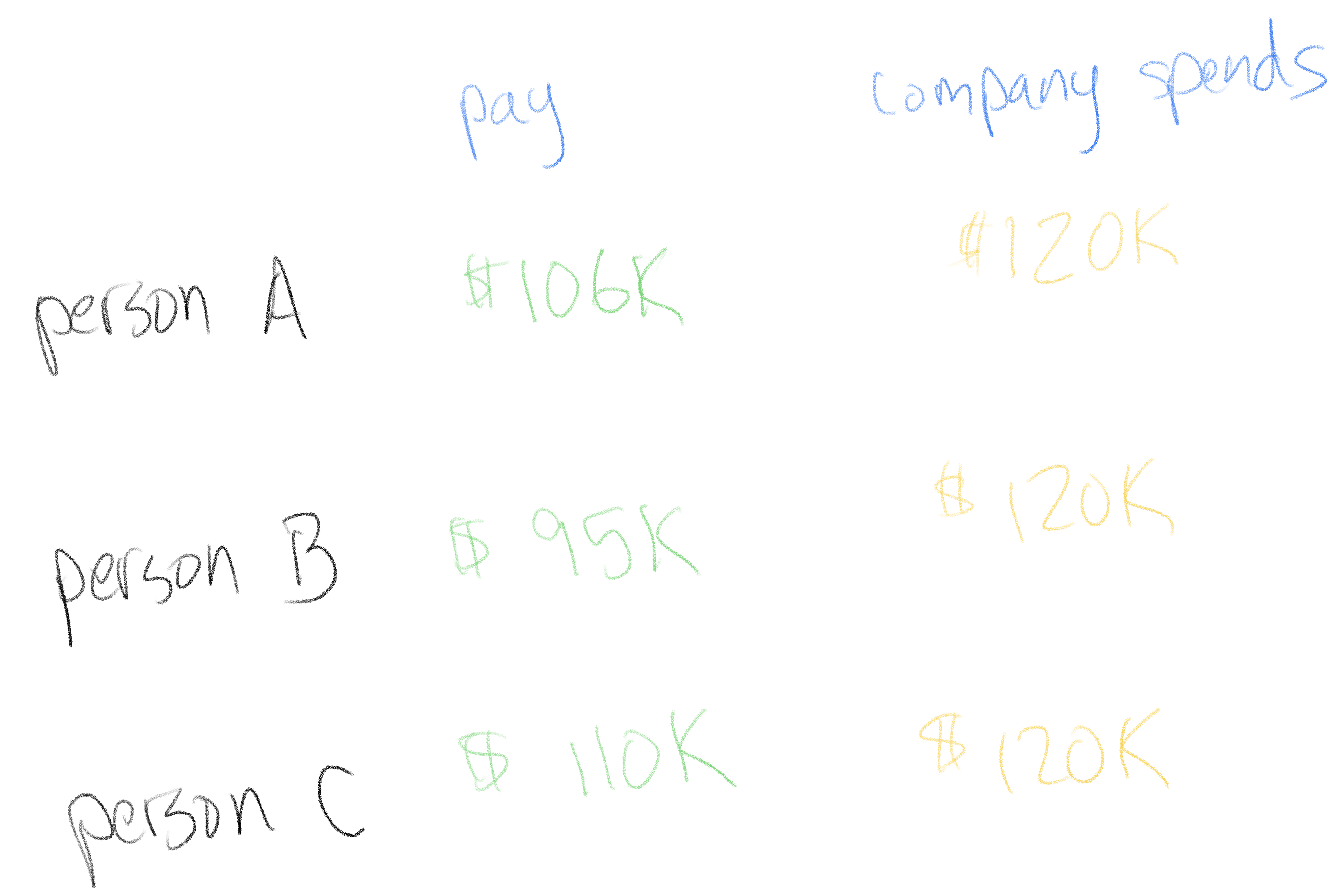 pay company spends
person A $106K $120K
person B $ 95K $ 120K
person C $ 110K $ 120K